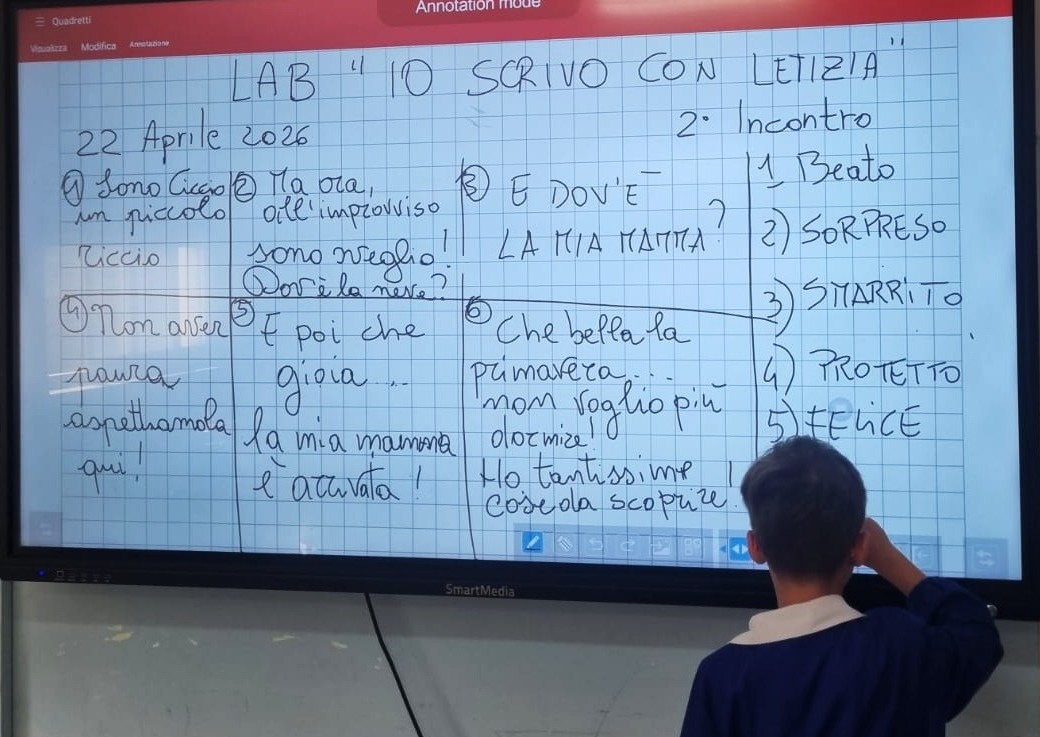 Annotation mode
Quadretti
Visualizza Modifica Annotazione
LAB "IO SCRIVO CON LETIZIA"
22 Aprile 2026
2° Incontro
① Sono Ciccio
un piccolo
riccio
② Ma ora,
all'improvviso
sono sveglio!
Dov'è la neve?
③ E DOV'E
LA MIA MAMMA?
④ Non aver
paura
aspettiamola
qui!
⑤ E poi che
gioia...
la mia mamma
è arrivata!
⑥ Che bella la
primavera...
non voglio più
dormire!
Ho tantissime
cose da scoprire!
1 Beato
2) SORPRESO
3) SMARRITO
4) PROTETTO
5) FELICE
SmartMedia